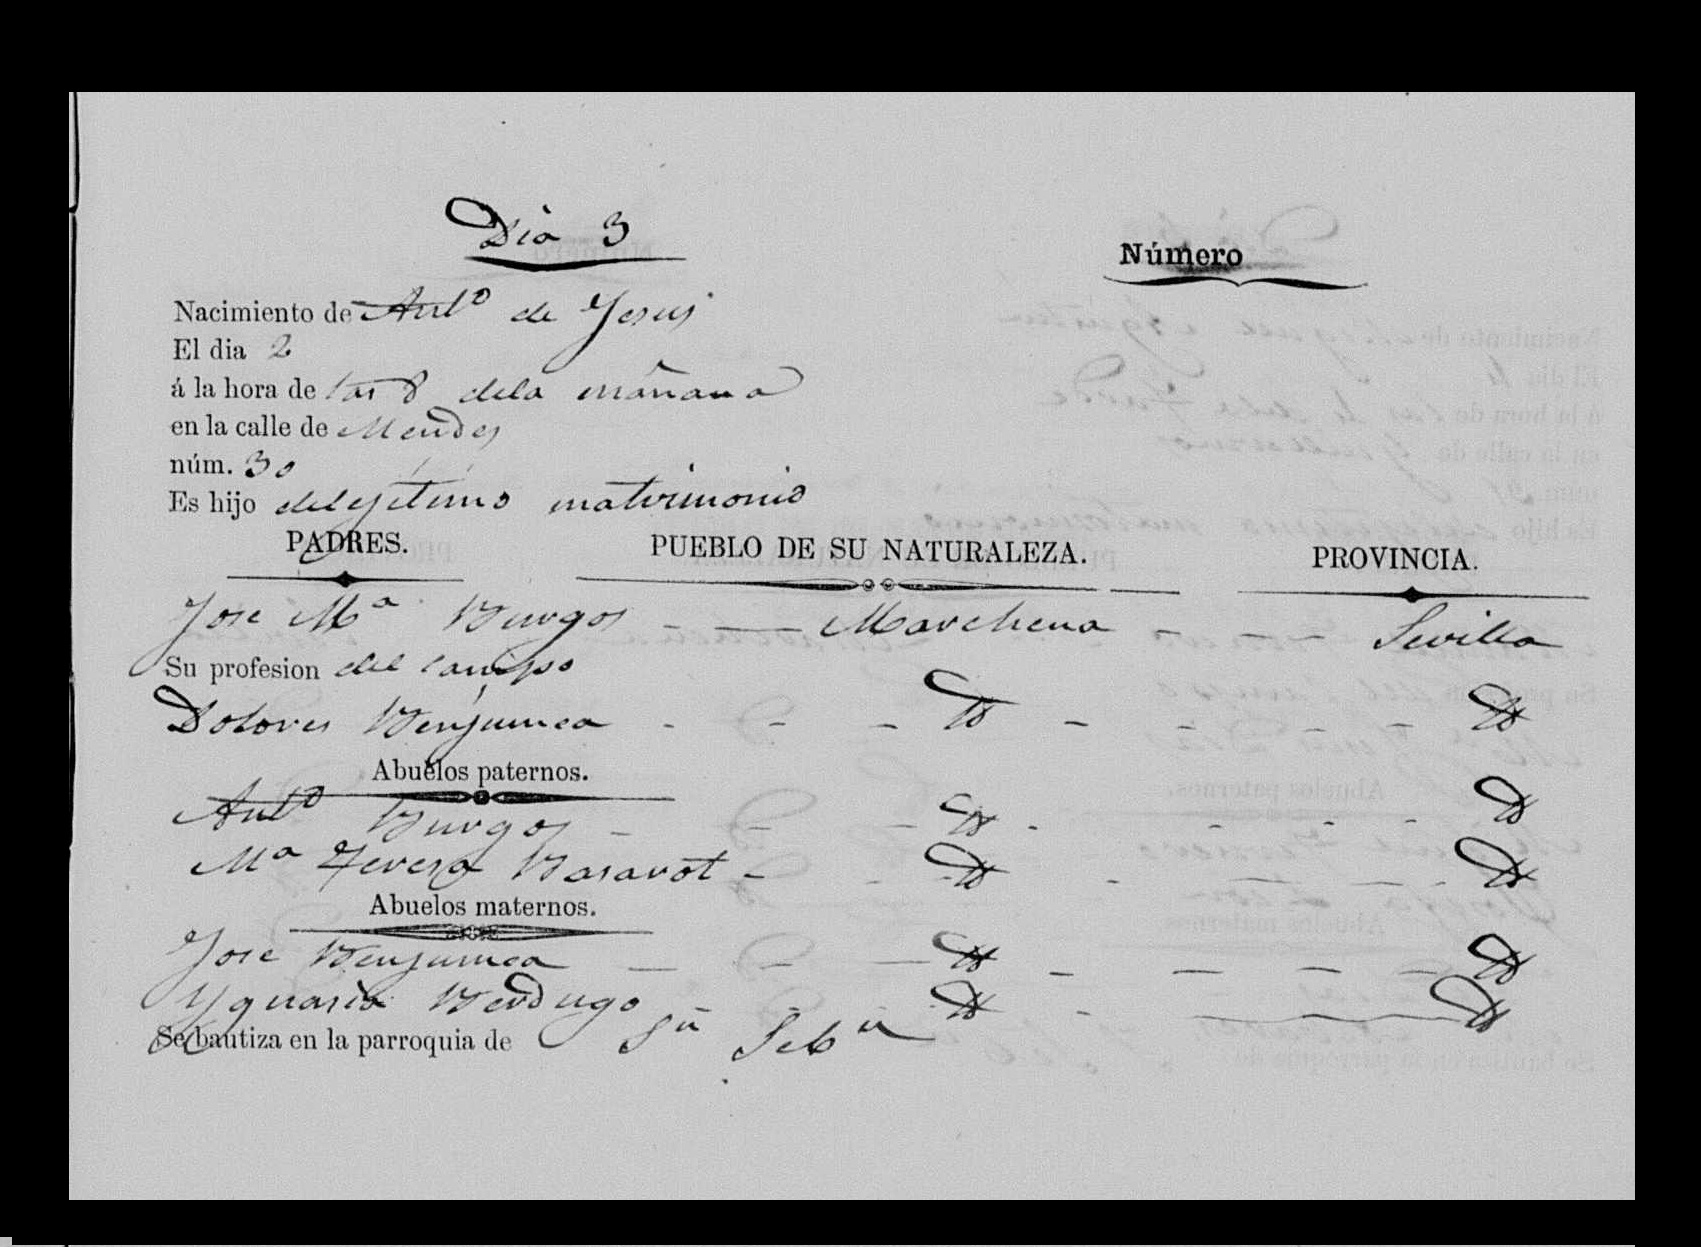 Dia 3
Número
Nacimiento de Antº de Jesus
El dia 2
á la hora de las 8 dela mañana
en la calle de Mendes
núm. 30
Es hijo delejitimo matrimonio
PADRES. PUEBLO DE SU NATURALEZA. PROVINCIA.
Jose Mª Burgos - — Marchena - — Sevilla
Su profesion del campo
Dolores Benjumea - - - Dº - - - - Dº
Abuelos paternos.
Antº Burgos - - - Dº - - - - Dº
Mª Teresa Basarot - - - Dº - - - - Dº
Abuelos maternos.
Jose Benjumea - - - Dº - - - - Dº
Ygnasia Berdugo Dº - — Dº
Se bautiza en la parroquia de Sⁿ Sebⁿ